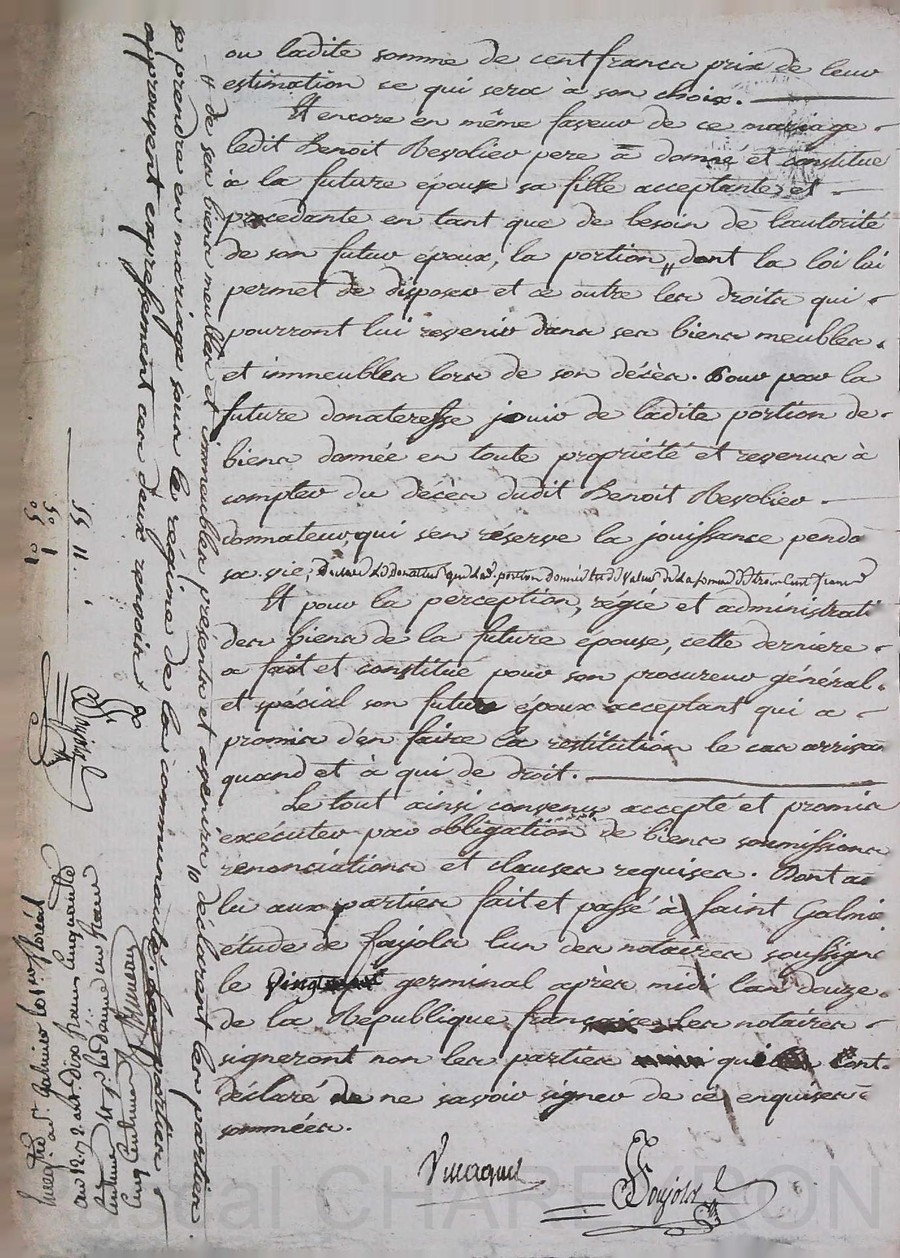 ou ladite somme de cent francs prix de leur
estimation ce qui sera à son choix.
Et encore en même faveur de ce mariage
ledit Benoit Revolier pere a donné et constitué
à la future épouse sa fille acceptante et
procedante en tant que de besoin de l'autorité
de son futur époux, la portion dont la loi lui
permet de disposer et ce outre les droits qui
pourront lui revenir dans ses biens meubles
et immeubles lors de son décès. Pour par la
future donateresse jouir de ladite portion de
biens donnée en toute propriété et revenus à
compter du décès dudit Benoit Revolier
donnateur qui s'en réserve la jouissance penda
sa vie, declare le Donateur que la de. portion donnée est de valeur de la somme de trois Cent francs
Et pour la perception, régie et administrati
des biens de la future épouse, cette derniere
a fait et constitué pour son procureur général
et spécial son futur époux acceptant qui a
promis d'en faire la restitution le cas arrivan
quand et à qui de droit.
Le tout ainsi convenu accepté et promis
exécuter par obligation de biens soumissions
renonciations et clauses requises. Dont ac
lu aux parties fait et passé à Saint Galmier
étude de Faujols l'un des notaires soussigné
le germinal après midi l'an douze
de la République française les notaires
signeront non les parties qui ont
déclaré ne savoir signer de ce enquises
sommées.
Faujols
de ses biens meubles et immeubles présents et avenirs déclarent les parties
se prendre en mariage sous le régime de la communauté. les parties
approuvent expressément ces deux renvois
Enregtré à St. Galmier le 1er floréal
an 12. 72 art. dix francs cinquante